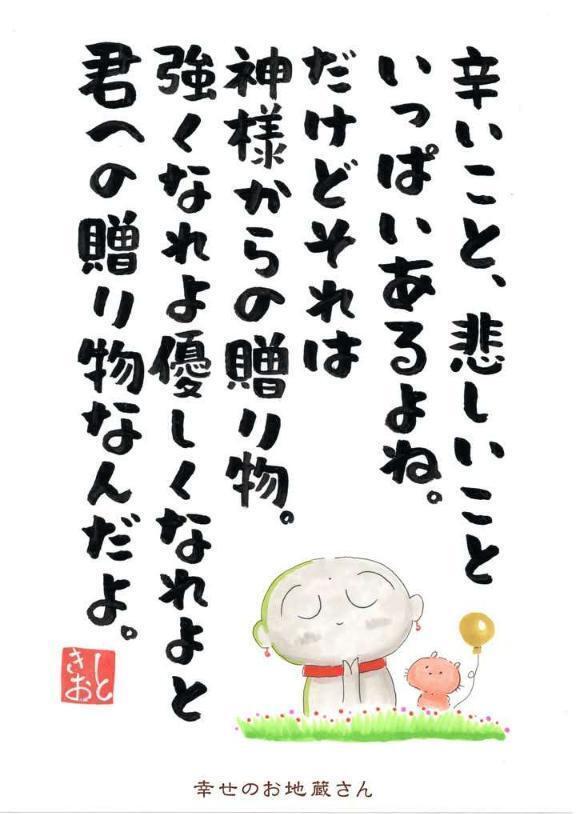 辛いこと、悲しいこと
いっぱいあるよね。
だけどそれは
神様からの贈り物。
強くなれよ優しくなれよと
君への贈り物なんだよ。
きしお と
幸せのお地蔵さん